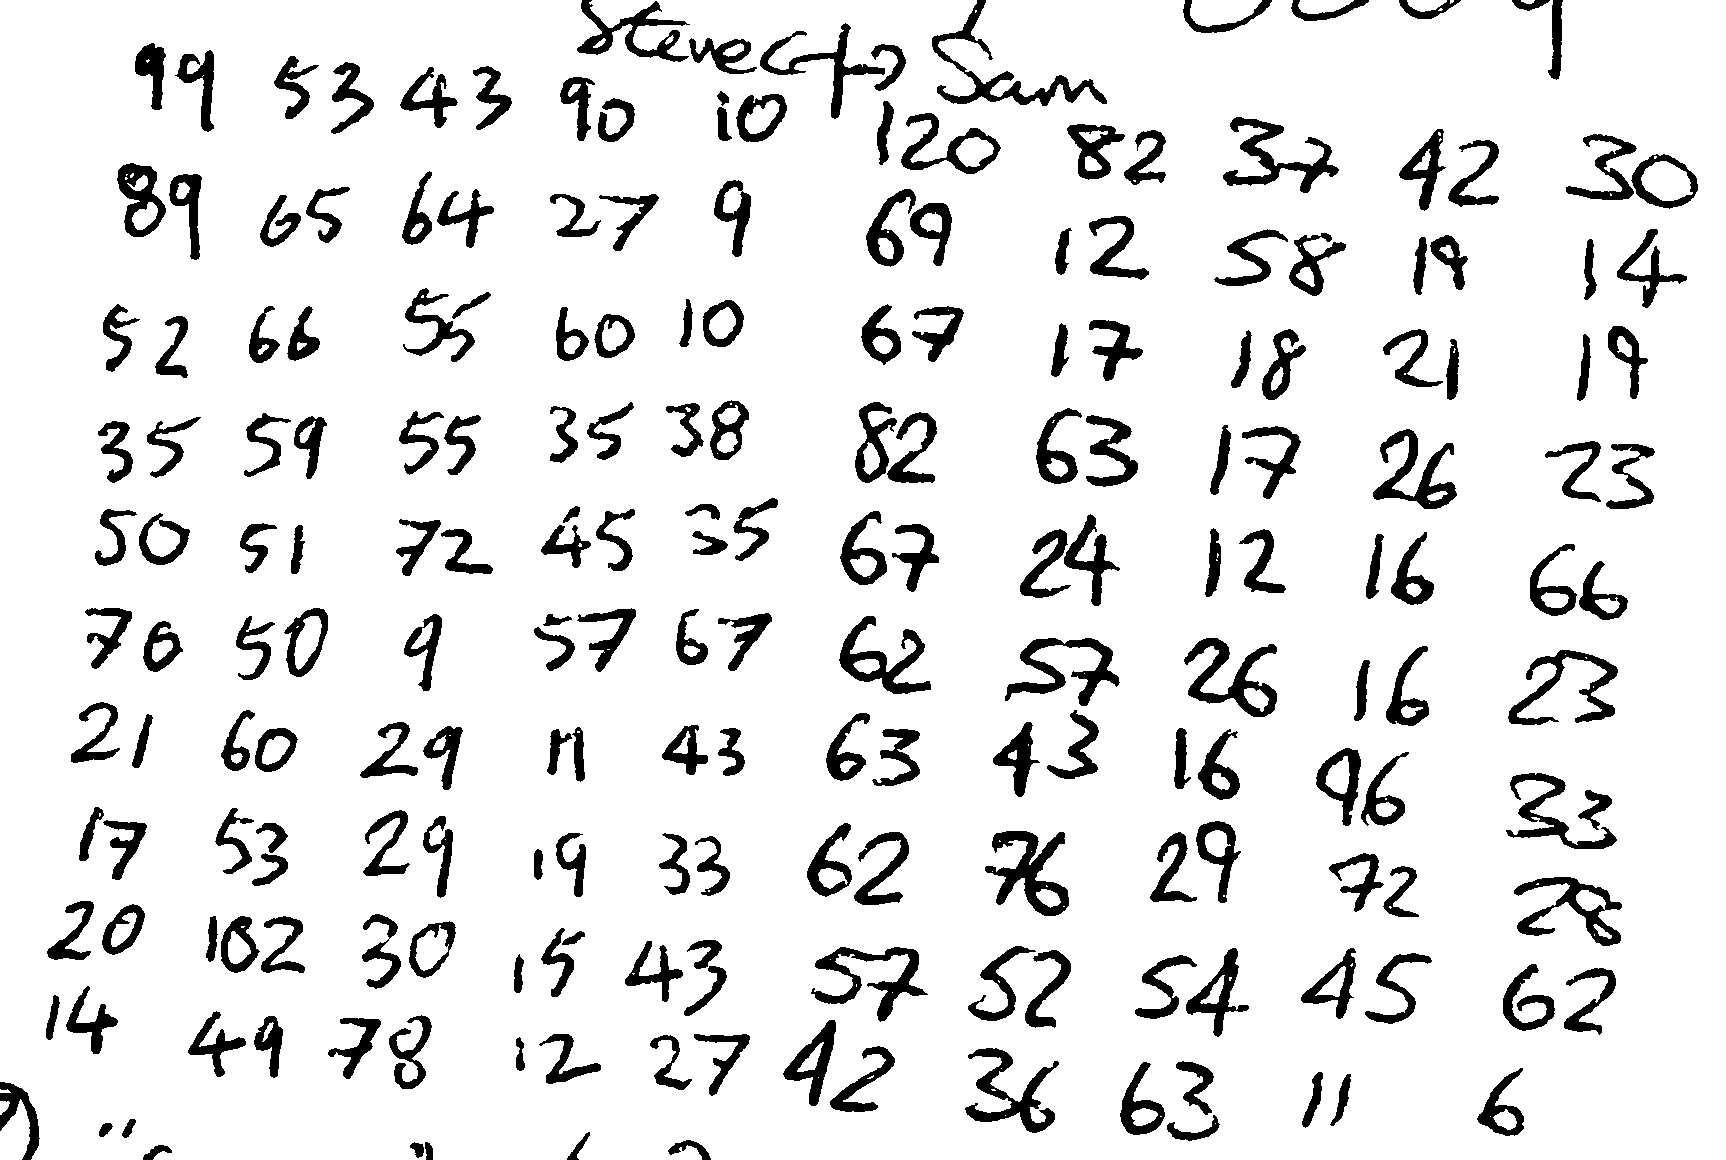 Steve Sam
99 53 43 90 10 120 82 37 42 30
89 65 64 27 9 69 12 58 19 14
52 66 55 60 10 67 17 18 21 19
35 59 55 35 38 82 63 17 26 23
50 51 72 45 35 67 24 12 16 66
70 50 9 57 67 62 57 26 16 23
21 60 29 11 43 63 43 16 96 33
17 53 29 19 33 62 76 29 72 28
20 102 30 15 43 57 52 54 45 62
14 49 78 12 27 42 36 63 11 6